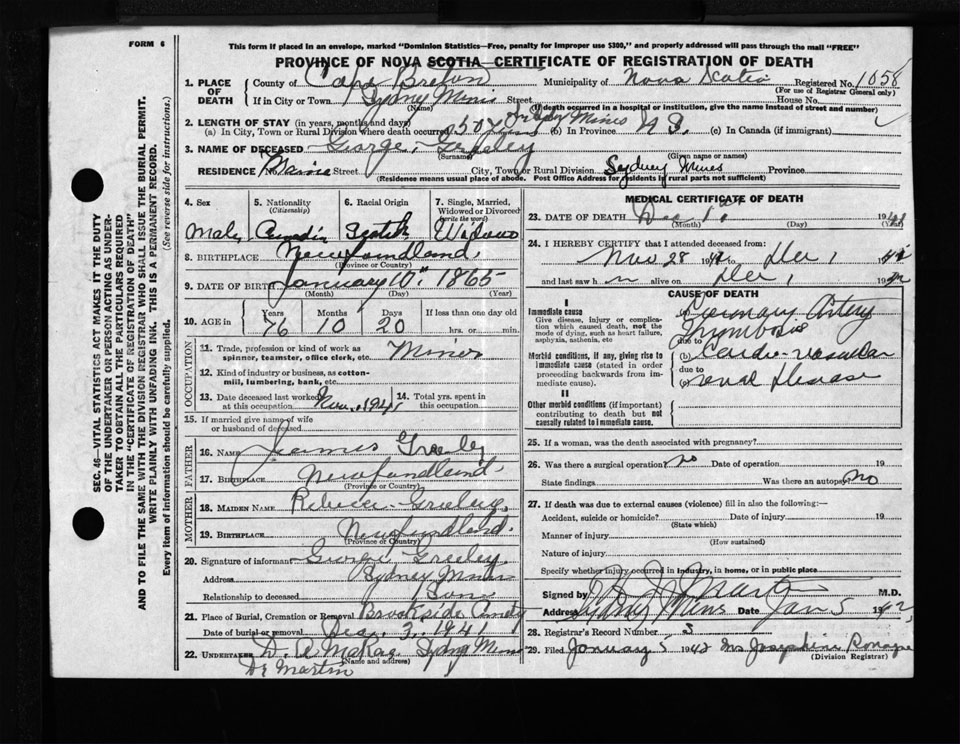 FORM 6
This form if placed in an envelope, marked "Dominion Statistics—Free, penalty for improper use $300," and properly addressed will pass through the mail "FREE"
PROVINCE OF NOVA SCOTIA—CERTIFICATE OF REGISTRATION OF DEATH
1. PLACE OF DEATH
County of Cape Breton Municipality of Nova Scotia Registered No. 1058
(For use of Registrar General only)
If in City or Town Sydney Mines Street House No.
(Name) (If death occurred in a hospital or institution, give the name instead of street and number)
2. LENGTH OF STAY (in years, months and days)
(a) In City, Town or Rural Division where death occurred 50 years In Sydney Mines (b) In Province N S. (c) In Canada (if immigrant)
3. NAME OF DECEASED George. Greeley
(Surname) (Given name or names)
RESIDENCE No. Main Street City, Town or Rural Division Sydney Mines Province
(Residence means usual place of abode. Post Office Address for residents in rural parts not sufficient)
4. Sex Male
5. Nationality (Citizenship) Canadin
6. Racial Origin Scotch
7. Single, Married, Widowed or Divorced (write the word) Widow
8. BIRTHPLACE Newfoundland.
(Province or Country)
9. DATE OF BIRTH January 10th. 1865
(Month) (Day) (Year)
10. AGE in Years 76 Months 10 Days 20 If less than one day old hrs. or min.
OCCUPATION
11. Trade, profession or kind of work as spinner, teamster, office clerk, etc. Miner
12. Kind of industry or business, as cotton-mill, lumbering, bank, etc.
13. Date deceased last worked at this occupation Nov. 1941
14. Total yrs. spent in this occupation
15. If married give name of wife or husband of deceased
FATHER
16. NAME James Greeley
17. BIRTHPLACE Newfundland.
(Province or Country)
MOTHER
18. MAIDEN NAME Rebecca Greeley.
19. BIRTHPLACE Newfoundland.
(Province or Country)
20. Signature of informant George Greeley
Address Sydney Mines
Relationship to deceased Son
21. Place of Burial, Cremation or Removal Brookside Cemety
Date of burial or removal Dec. 3, 1941
22. UNDERTAKER D. A McRae. Sydney Mines
(Name and address)
Dr Martin
MEDICAL CERTIFICATE OF DEATH
23. DATE OF DEATH Dec 1st 1941
(Month) (Day) (Year)
24. I HEREBY CERTIFY that I attended deceased from:
Nov 28 1941 to Dec 1 1941
and last saw h m alive on Dec 1 19
CAUSE OF DEATH
I
Immediate cause
Give disease, injury or complication which caused death, not the mode of dying, such as heart failure, asphyxia, asthenia, etc
(a) Coronary Artery Thrombosis
due to
Morbid conditions, if any, giving rise to immediate cause (stated in order proceeding backwards from immediate cause).
(b) Cardio-vascular
due to
(c) renal disease
II
Other morbid conditions (if important) contributing to death but not causally related to immediate cause.
25. If a woman, was the death associated with pregnancy?
26. Was there a surgical operation? no Date of operation 19
State findings Was there an autopsy? no
27. If death was due to external causes (violence) fill in also the following:
Accident, suicide or homicide? Date of injury 19
(State which)
Manner of injury
(How sustained)
Nature of injury
Specify whether injury occurred in industry, in home, or in public place
Signed by Martin M.D.
Address Sydney Mines Date Jan 5 1942
28. Registrar's Record Number 3
29. Filed January 5 1942 Mrs Josephine
(Division Registrar)
SEC. 46—VITAL STATISTICS ACT MAKES IT THE DUTY
OF THE UNDERTAKER OR PERSON ACTING AS UNDER-
TAKER TO OBTAIN ALL THE PARTICULARS REQUIRED
IN THE "CERTIFICATE OF REGISTRATION OF DEATH"
AND TO FILE THE SAME WITH THE DIVISION REGISTRAR WHO SHALL ISSUE THE BURIAL PERMIT.
WRITE PLAINLY WITH UNFADING INK. THIS IS A PERMANENT RECORD.
Every item of information should be carefully supplied. (See reverse side for instructions).